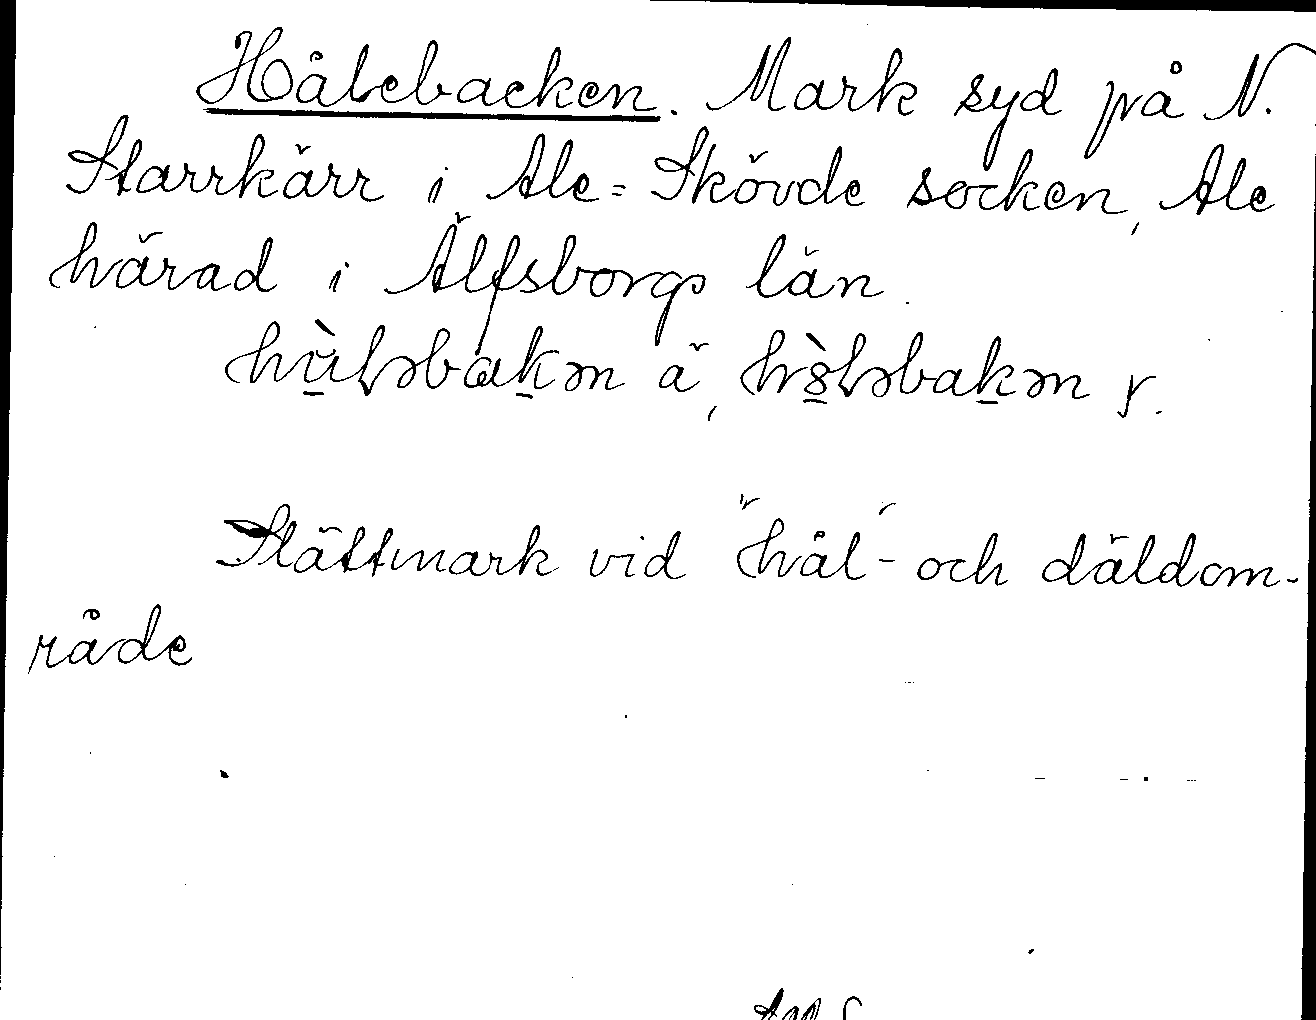 Hålebacken. Mark syd på N.
Starrkärr i Ale-Skövde socken, Ale
härad i Älfsborgs län.
i ä, r.
Slättmark vid "hål"- och däldom-
råde